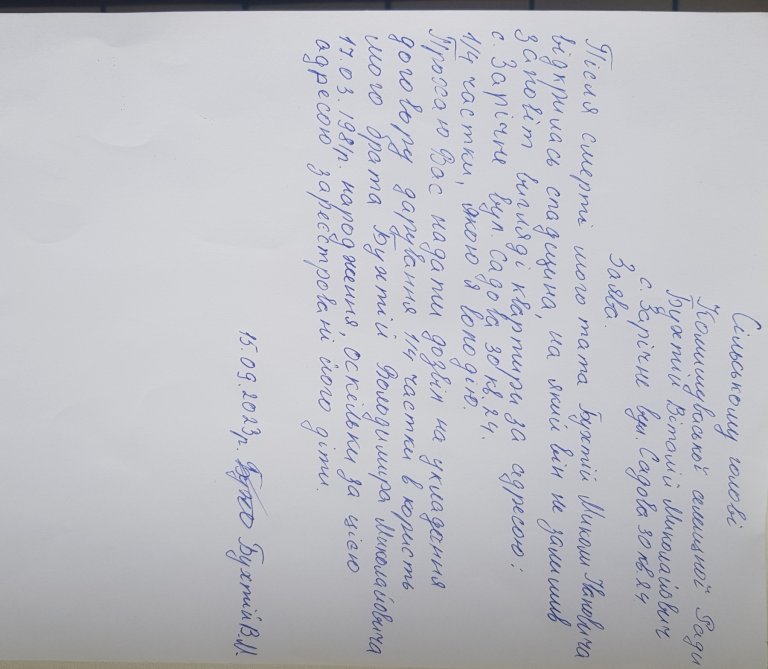 Сільському голові
Комишуваської селищної Ради
Бухтій Віталій Миколайович
с. Зарічне вул. Садова 30 кв. 24
Заява.
Після смерті мого тата Бухтій Миколи Івановича
відкрилась спадщина, на який він не залишив
Заповіт вигляді квартири за адресою:
с. Зарічне вул. Садова 30 кв. 24.
1/4 частки, якою я володію.
Прохаю Вас надати дозвіл на укладання
договору дарування 1/4 частки в користь
мого брата Бухтій Володимира Миколайовича
17.03.1981р. народження, оскільки за цією
адресою зареєстровані його діти.
15.09.2023р. Бухтій В.М.